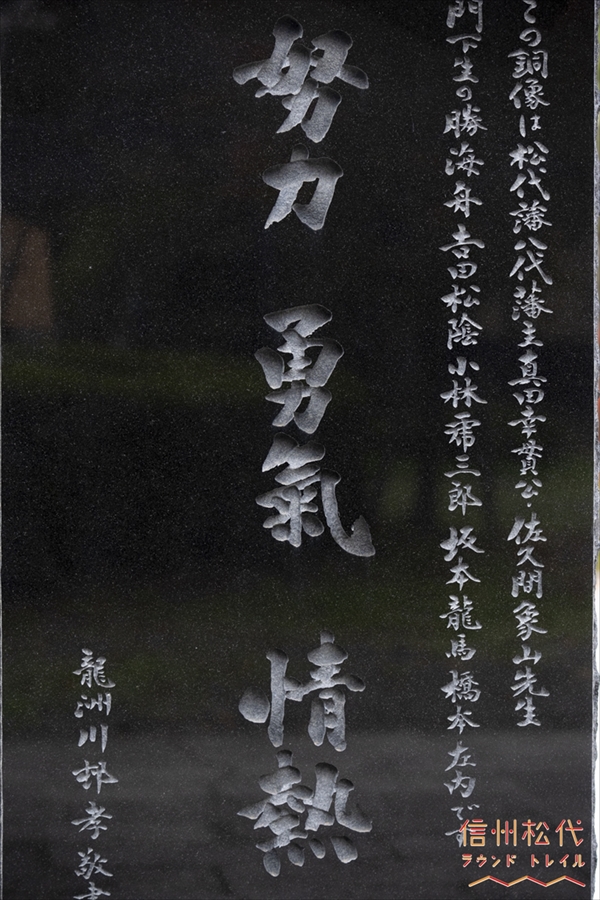 この銅像は松代藩八代藩主真田幸貫公・佐久間象山先生
門下生の勝海舟吉田松陰小林虎三郎坂本龍馬橋本左内です
努力 勇氣 情熱
龍洲川邨孝敬書
信州松代
ラウンド トレイル